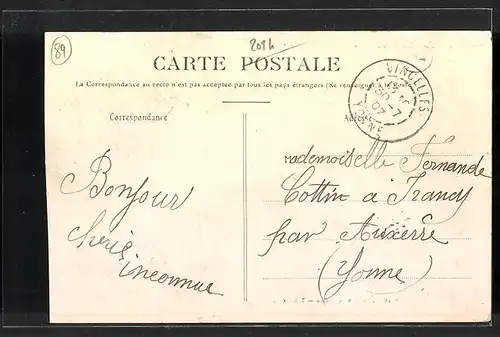 89
208h
CARTE POSTALE
La Correspondance au recto n'est pas acceptée par tous les pays étrangers (Se renseigner à la Poste)
VINCELLES
30-7
07
YONNE
Correspondance
Adresse
Bonjour
chérie
inconnue
Mademoiselle Fernande
Cottin a Irancy
par Auxerre
(Yonne)